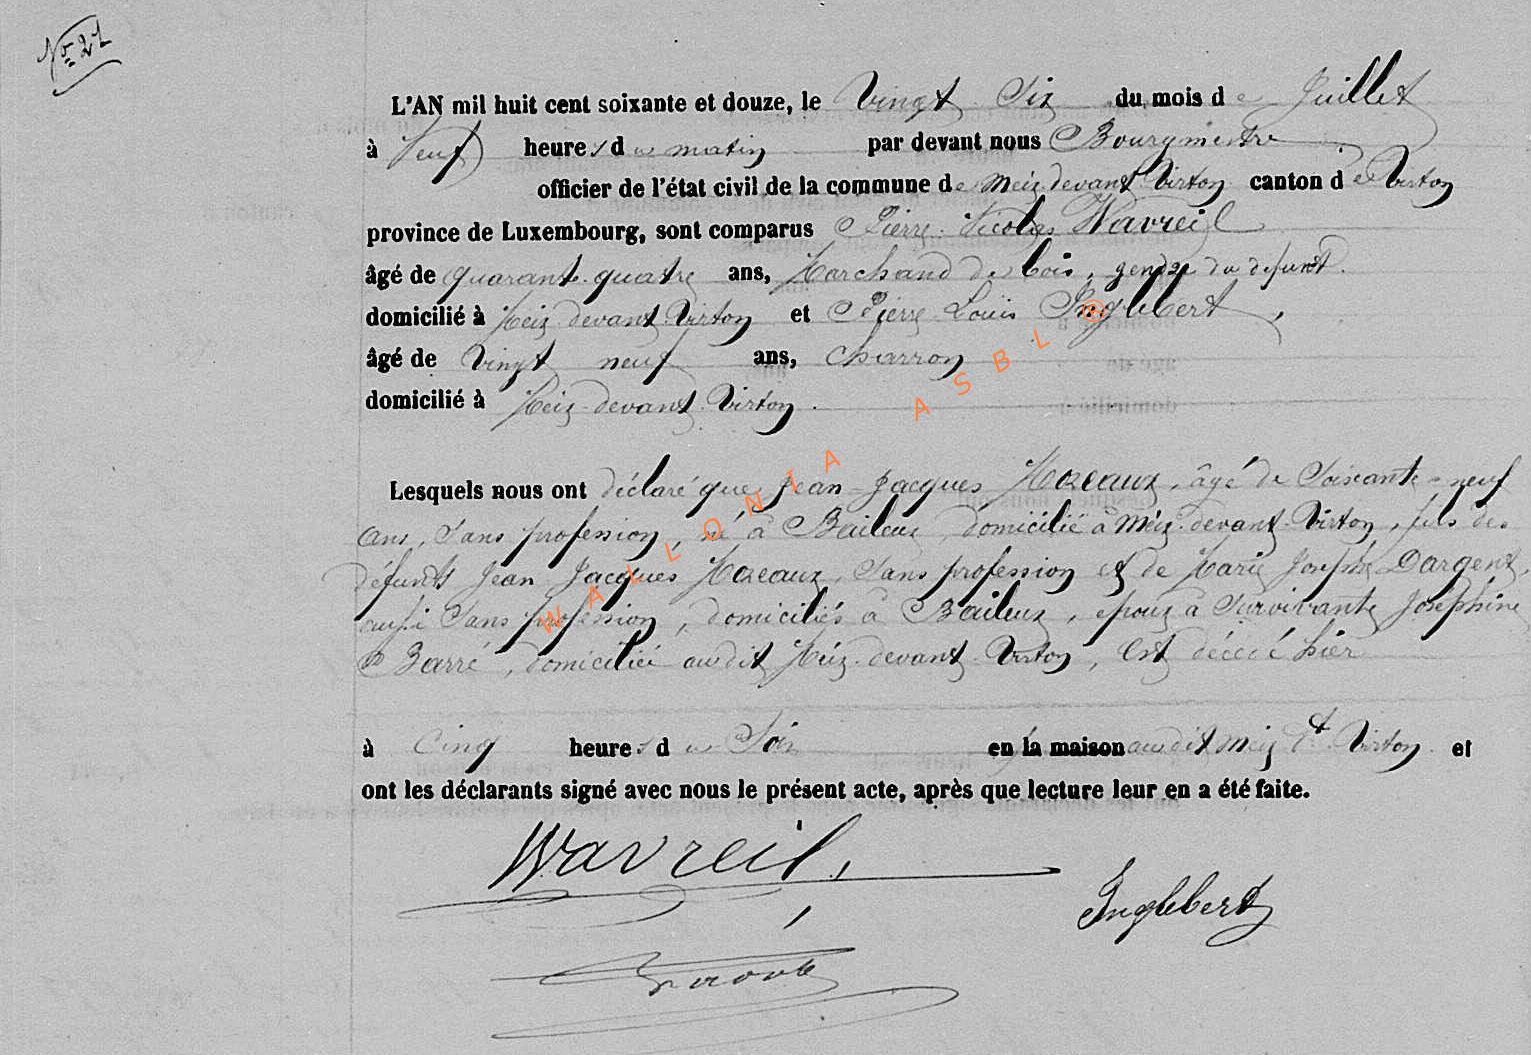 N° 21
L'AN mil huit cent soixante et douze, le Vingt Six du mois de Juillet
à Neuf heures du matin par devant nous Bourgmestre
officier de l'état civil de la commune de Meix devant Virton canton de Virton
province de Luxembourg, sont comparus Pierre Nicolas Wavreil
âgé de quarante quatre ans, Marchand de bois, gendre du défunt.
domicilié à Meix devant Virton et Pierre Louis Inglebert,
âgé de vingt neuf ans, charron
domicilié à Meix-devant-Virton.
Lesquels nous ont déclaré que Jean-Jacques Mozeaux, âgé de Soixante-neuf
ans, Sans profession, né à Baileux, domicilié à Meix-devant-Virton, fils des
défunts Jean-Jacques Mozeaux, Sans profession et de Marie Josephe Dargent,
aussi Sans profession, domiciliés à Baileux, epoux a Survivante Joséphine
Barré, domiciliée audit Meix-devant-Virton, Est décédé hier
à Cinq heures du Soir en la maison audit Meix dt Virton et
ont les déclarants signé avec nous le présent acte, après que lecture leur en a été faite.
Wavreil,
Inglebert
WALLONIA ASBL ®